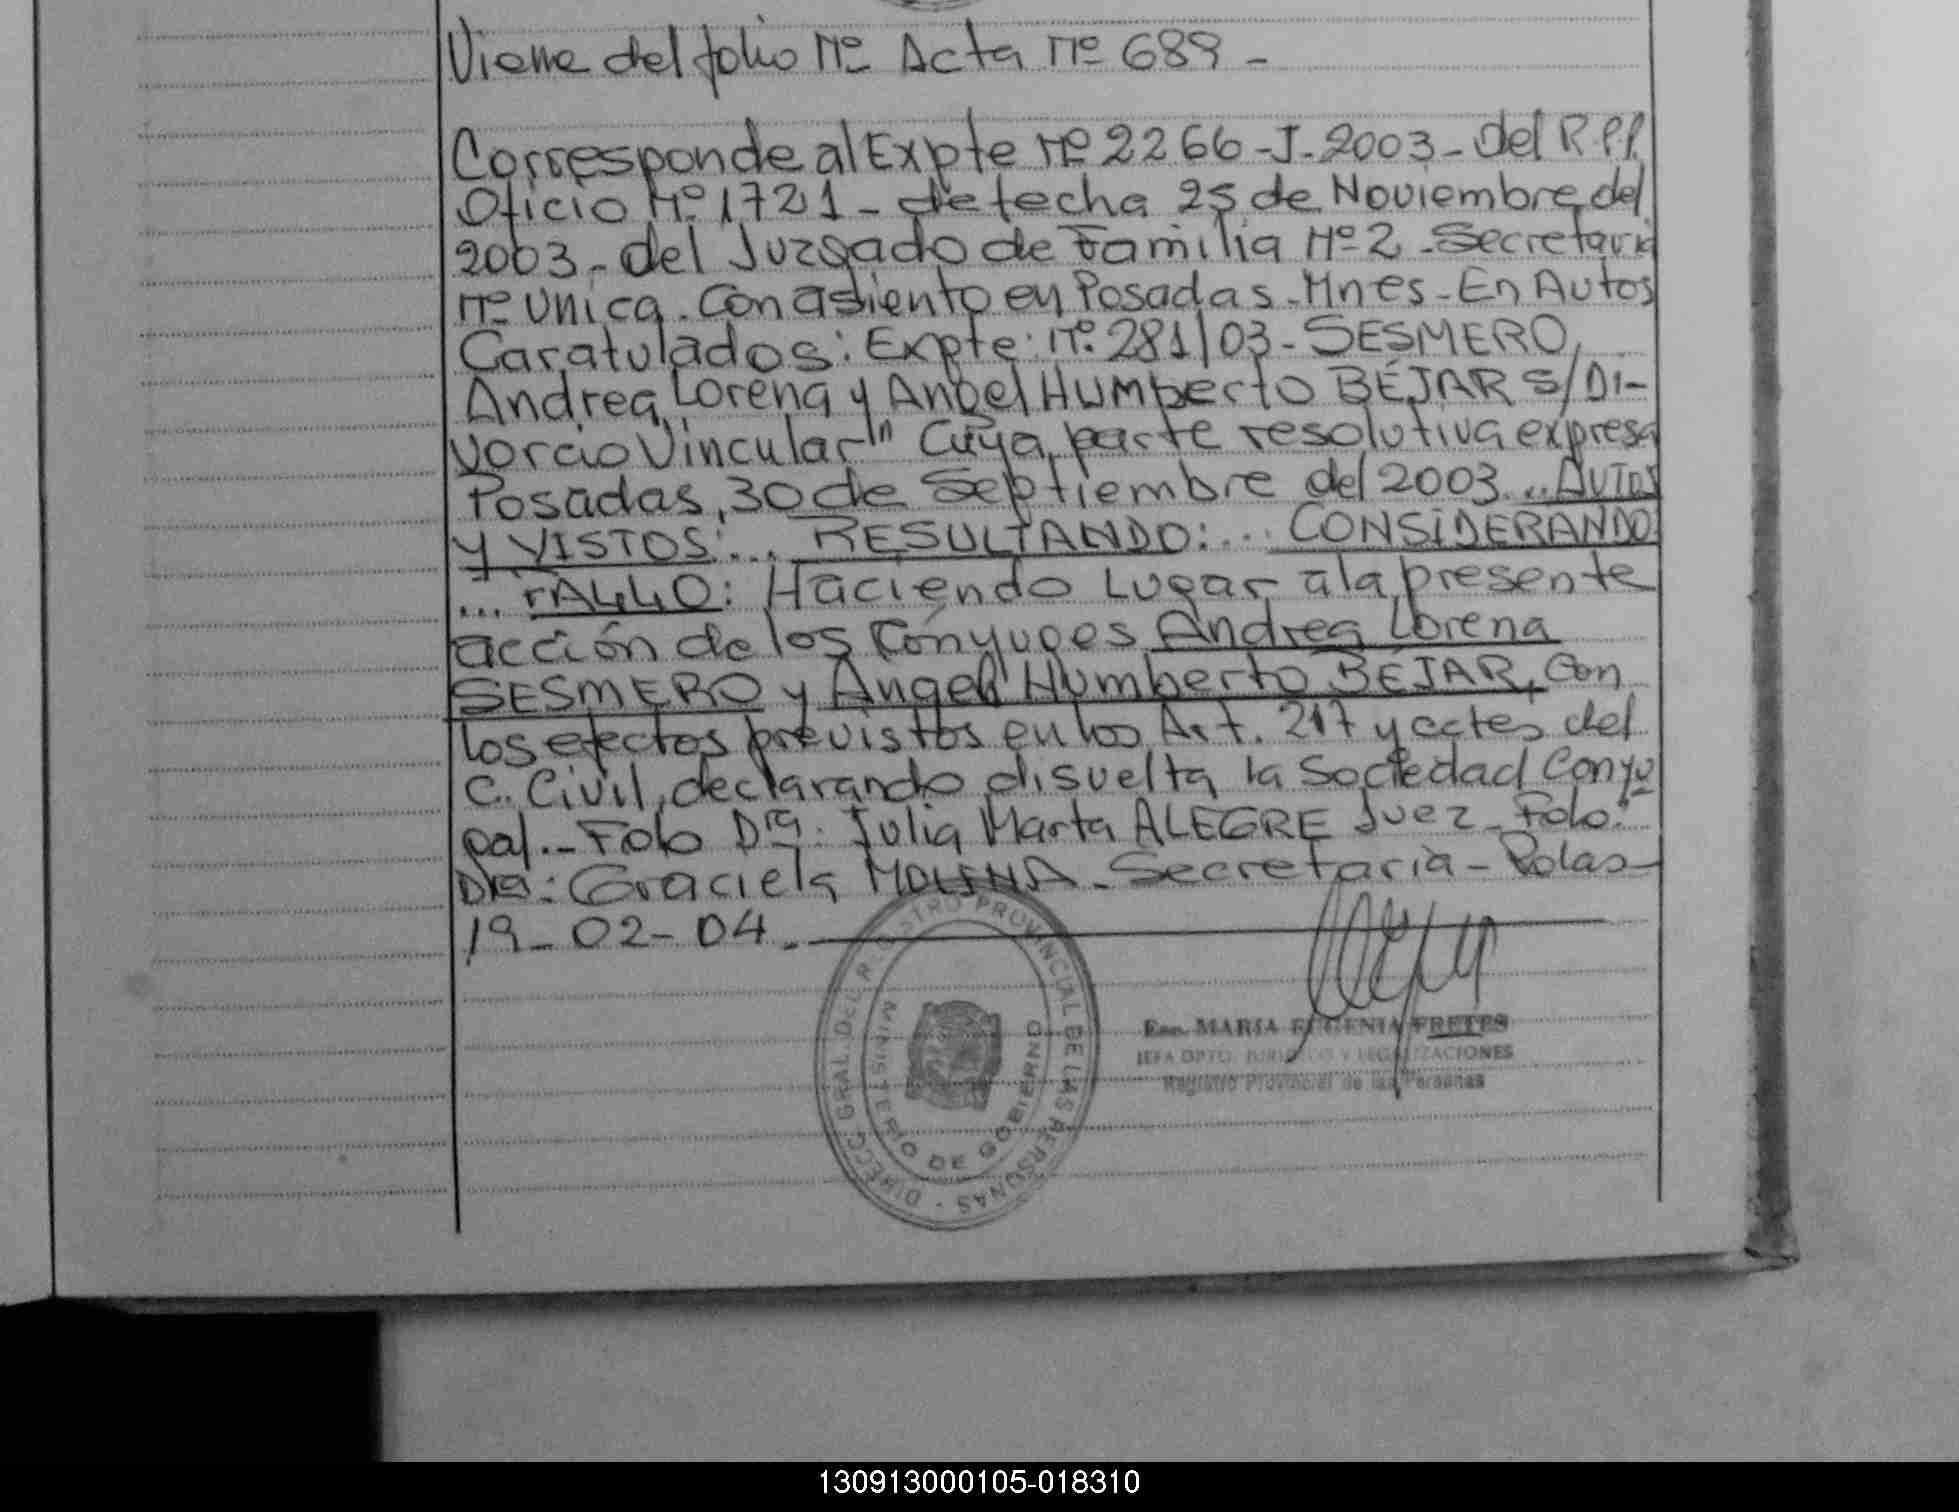 Viene del folio Nº Acta Nº 689 -
Corresponde al Expte Nº 2266-J-2003- del R.P.P.
Oficio Nº 1721 - de fecha 25 de Noviembre del
2003 - del Juzgado de Familia Nº 2 - Secretaria
Nº Unica. Con asiento en Posadas - Mnes - En Autos
Caratulados: Expte: Nº 281/03 - SESMERO,
Andrea Lorena y Angel Humberto BEJAR S/ Di-
vorcio Vincular" Cuya parte resolutiva expresa
Posadas, 30 de Septiembre del 2003... AUTOS
Y VISTOS:... RESULTANDO:... CONSIDERANDO:
... FALLO: Haciendo Lugar a la presente
acción de los Cónyuges Andrea Lorena
SESMERO y Angel Humberto BEJAR, con
los efectos previstos en los Art. 217 y cctes del
C. Civil, declarando disuelta la Sociedad Conyu
gal. - Fdo Dra. Julia Marta ALEGRE Juez - Fdo:
Dra: Graciela MOLINA - Secretaria - Pdas
19-02-04. -
DIRECC. GRAL. DEL REGISTRO PROVINCIAL DE LAS PERSONAS -
MINISTERIO DE GOBIERNO
Esc. MARIA EUGENIA FRETES
JEFA DPTO. JURIDICO Y LEGALIZACIONES
Registro Provincial de las Personas
130913000105-018310